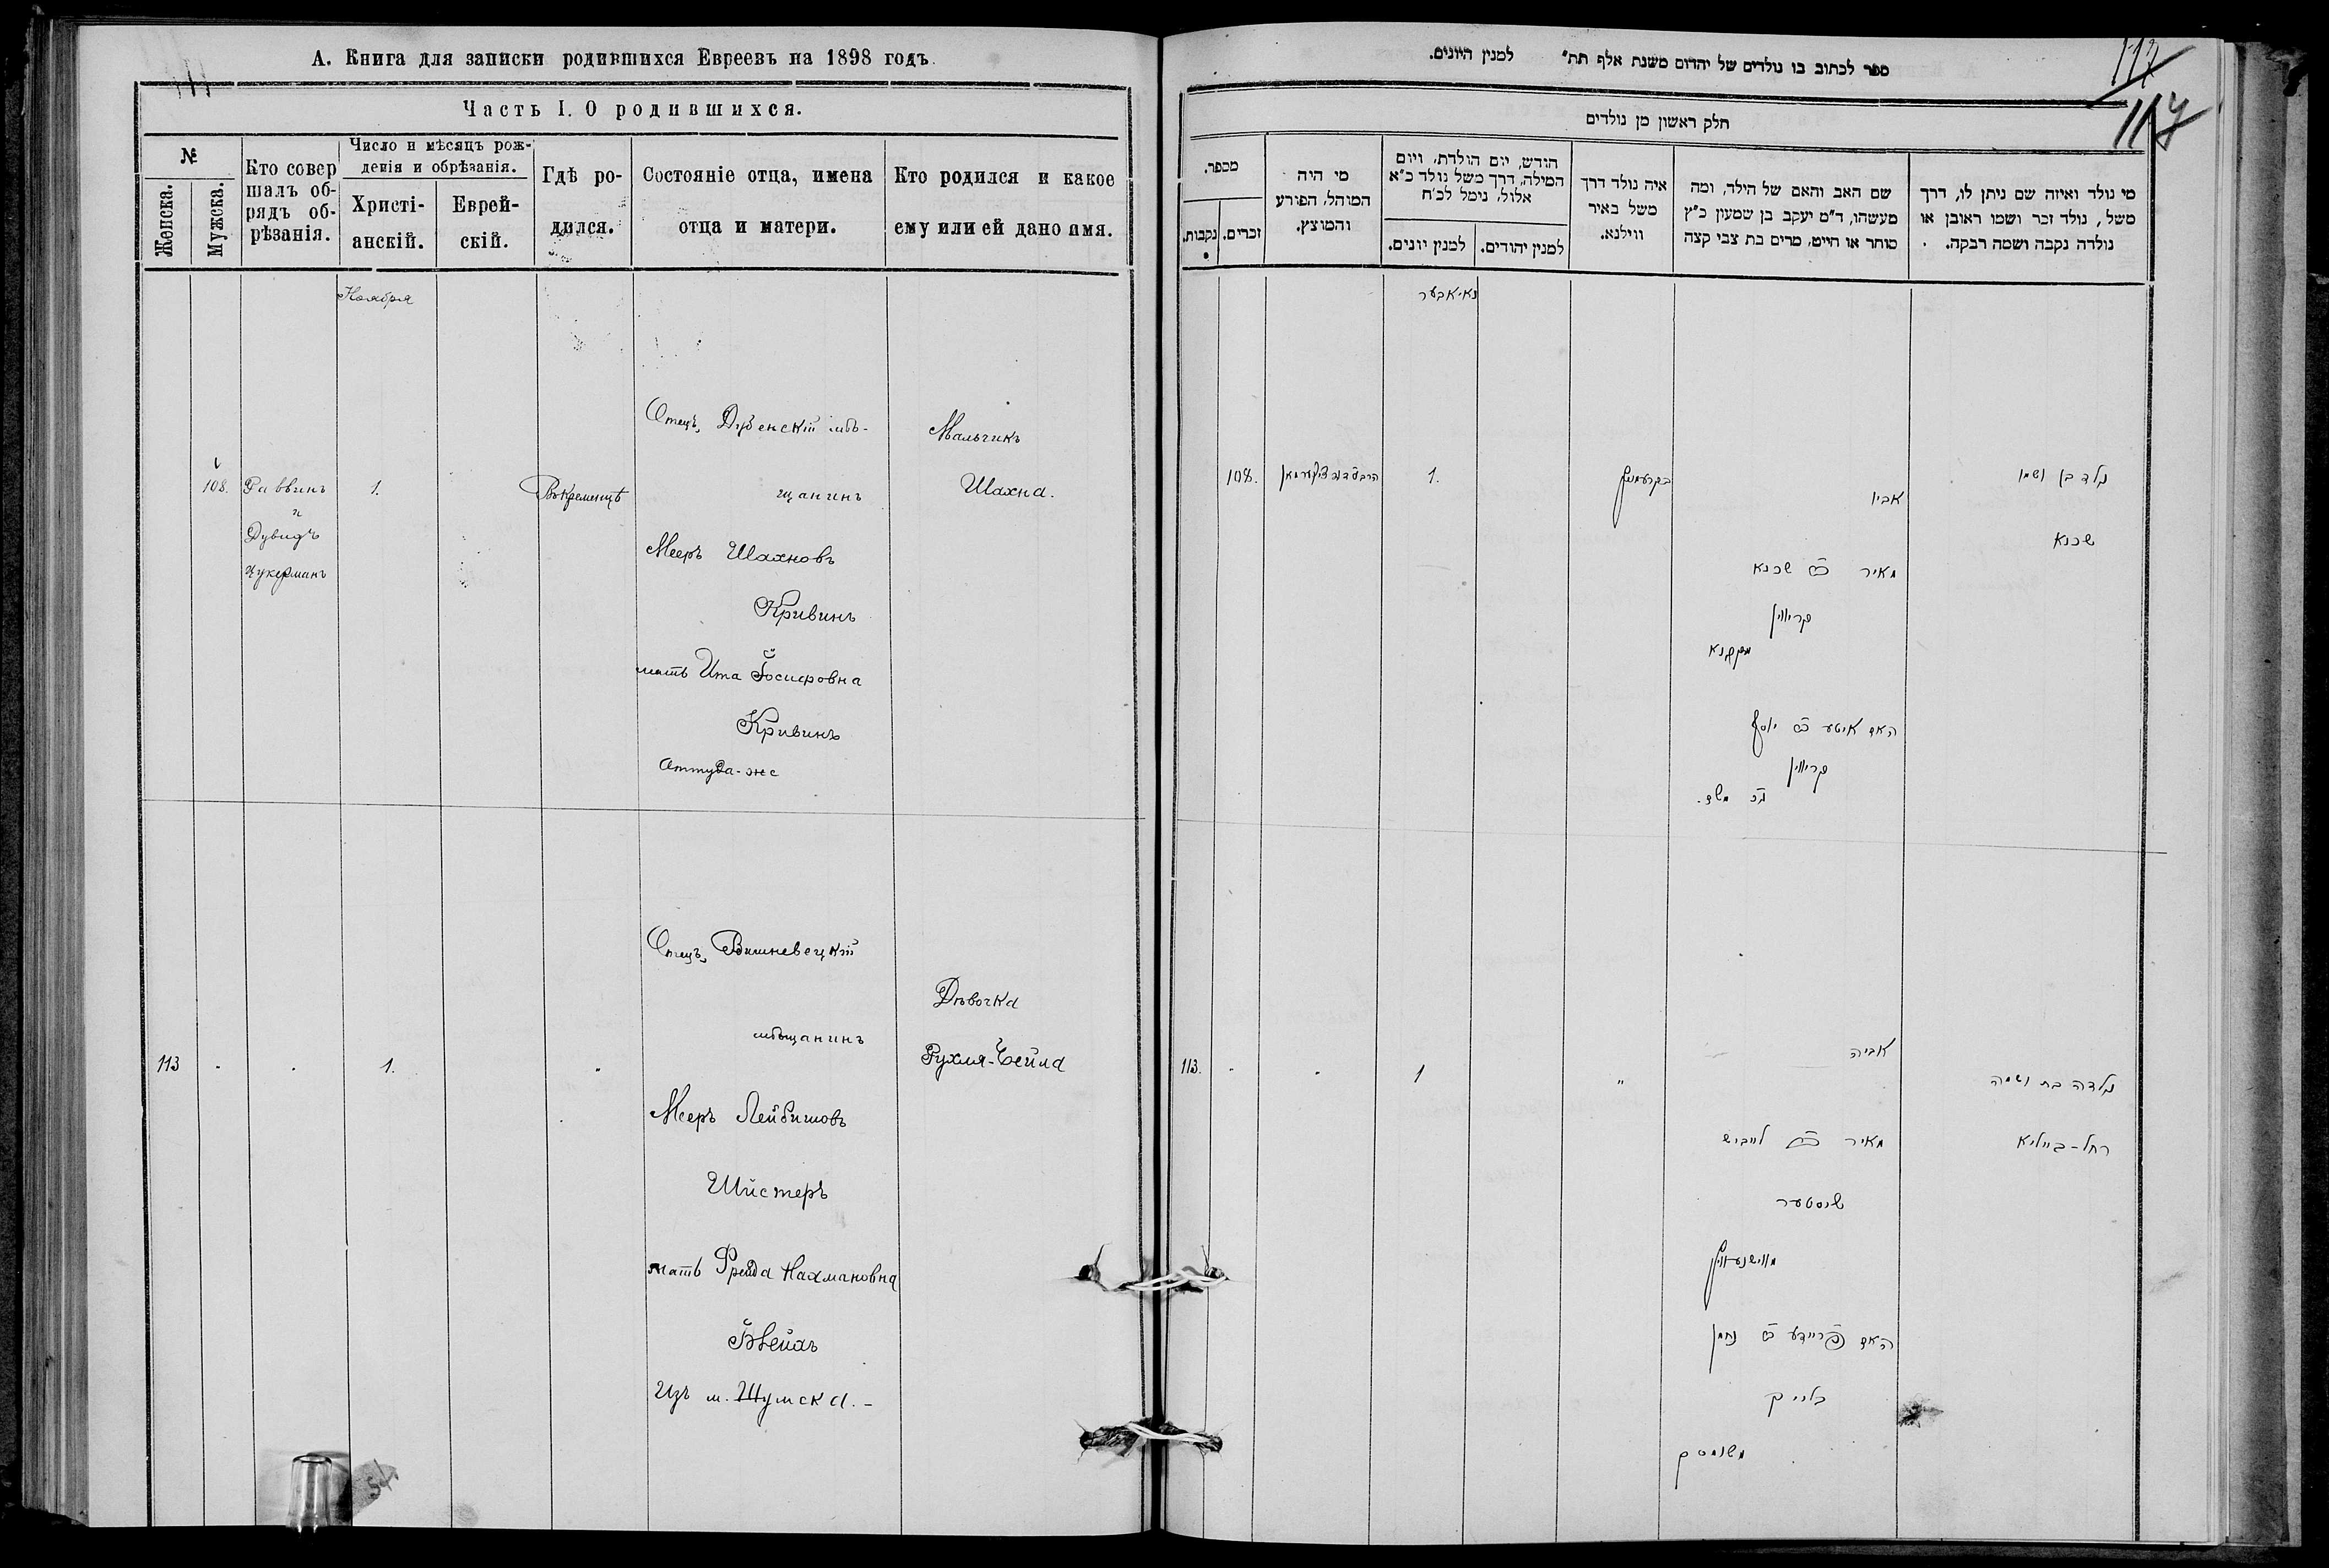 А. Книга для записки родившихся Евреевъ на 1898 годъ.
Часть I. О родившихся.
№
Женска.
Мужска.
Кто совер
шалъ об-
рядъ об-
рѣзанія.
Число и мѣсяцъ рож-
денія и обрѣзанія.
Христі-
анскій.
Еврей-
скій.
Гдѣ ро-
дился.
Состояніе отца, имена
отца и матери.
Кто родился и какое
ему или ей дано имя.
Ноября
108.
Раввинъ
и
Дувидъ
Цукерманъ
1.
Въ Кременцѣ
Отецъ, Дубенскій мѣ-
щанинъ
Мееръ Шахновъ
Кривинъ
мать Ита Іосифовна
Кривинъ
Оттуда-же
Мальчикъ
Шахна.
113
1.
Отецъ, Вишневецкій
мѣщанинъ
Мееръ Лейбишовъ
Шистеръ
мать Фрейда Нахмановна
Изъ м. Шумска.-
Дѣвочка
Рухля-Бейла
ספר לכתוב בו נולדים של יהדום משנת אלף תת״ למנין היונים.
117
חלק ראשון מן נולדים
מספר.
נקבות.
זכרים.
מי היה
המוהל, הפורע
והמוצץ.
חודש, יום הולדת, ויום
המילה, דרך משל נולד כ״א
אלול, נימל לכ״ח
למנין יונים.
למנין יהודים.
איה נולד דרך
משל באיר
ווילנא.
שם האב והאם של הילד, ומה
מעשהו, ד״מ יעקב בן שמעון כ״ץ
סוחר או חייט, מרים בת צבי קצה
מי נולד ואיזה שם ניתן לו, דרך
משל, נולד זכר ושמו ראובן או
נולדה נקבה ושמה רבקה.
נאיאבער
108.
1.
אביו
מאיר שכנא
קריווין
האם איטע יוסף
קריווין
נולד בן ושמו
שכנא
113.
1
"
אביה
מאיר לייביש
שיסטער
האם פריידע נחמן
משומסק
נולדה בת ושמה
רחל-ביילא